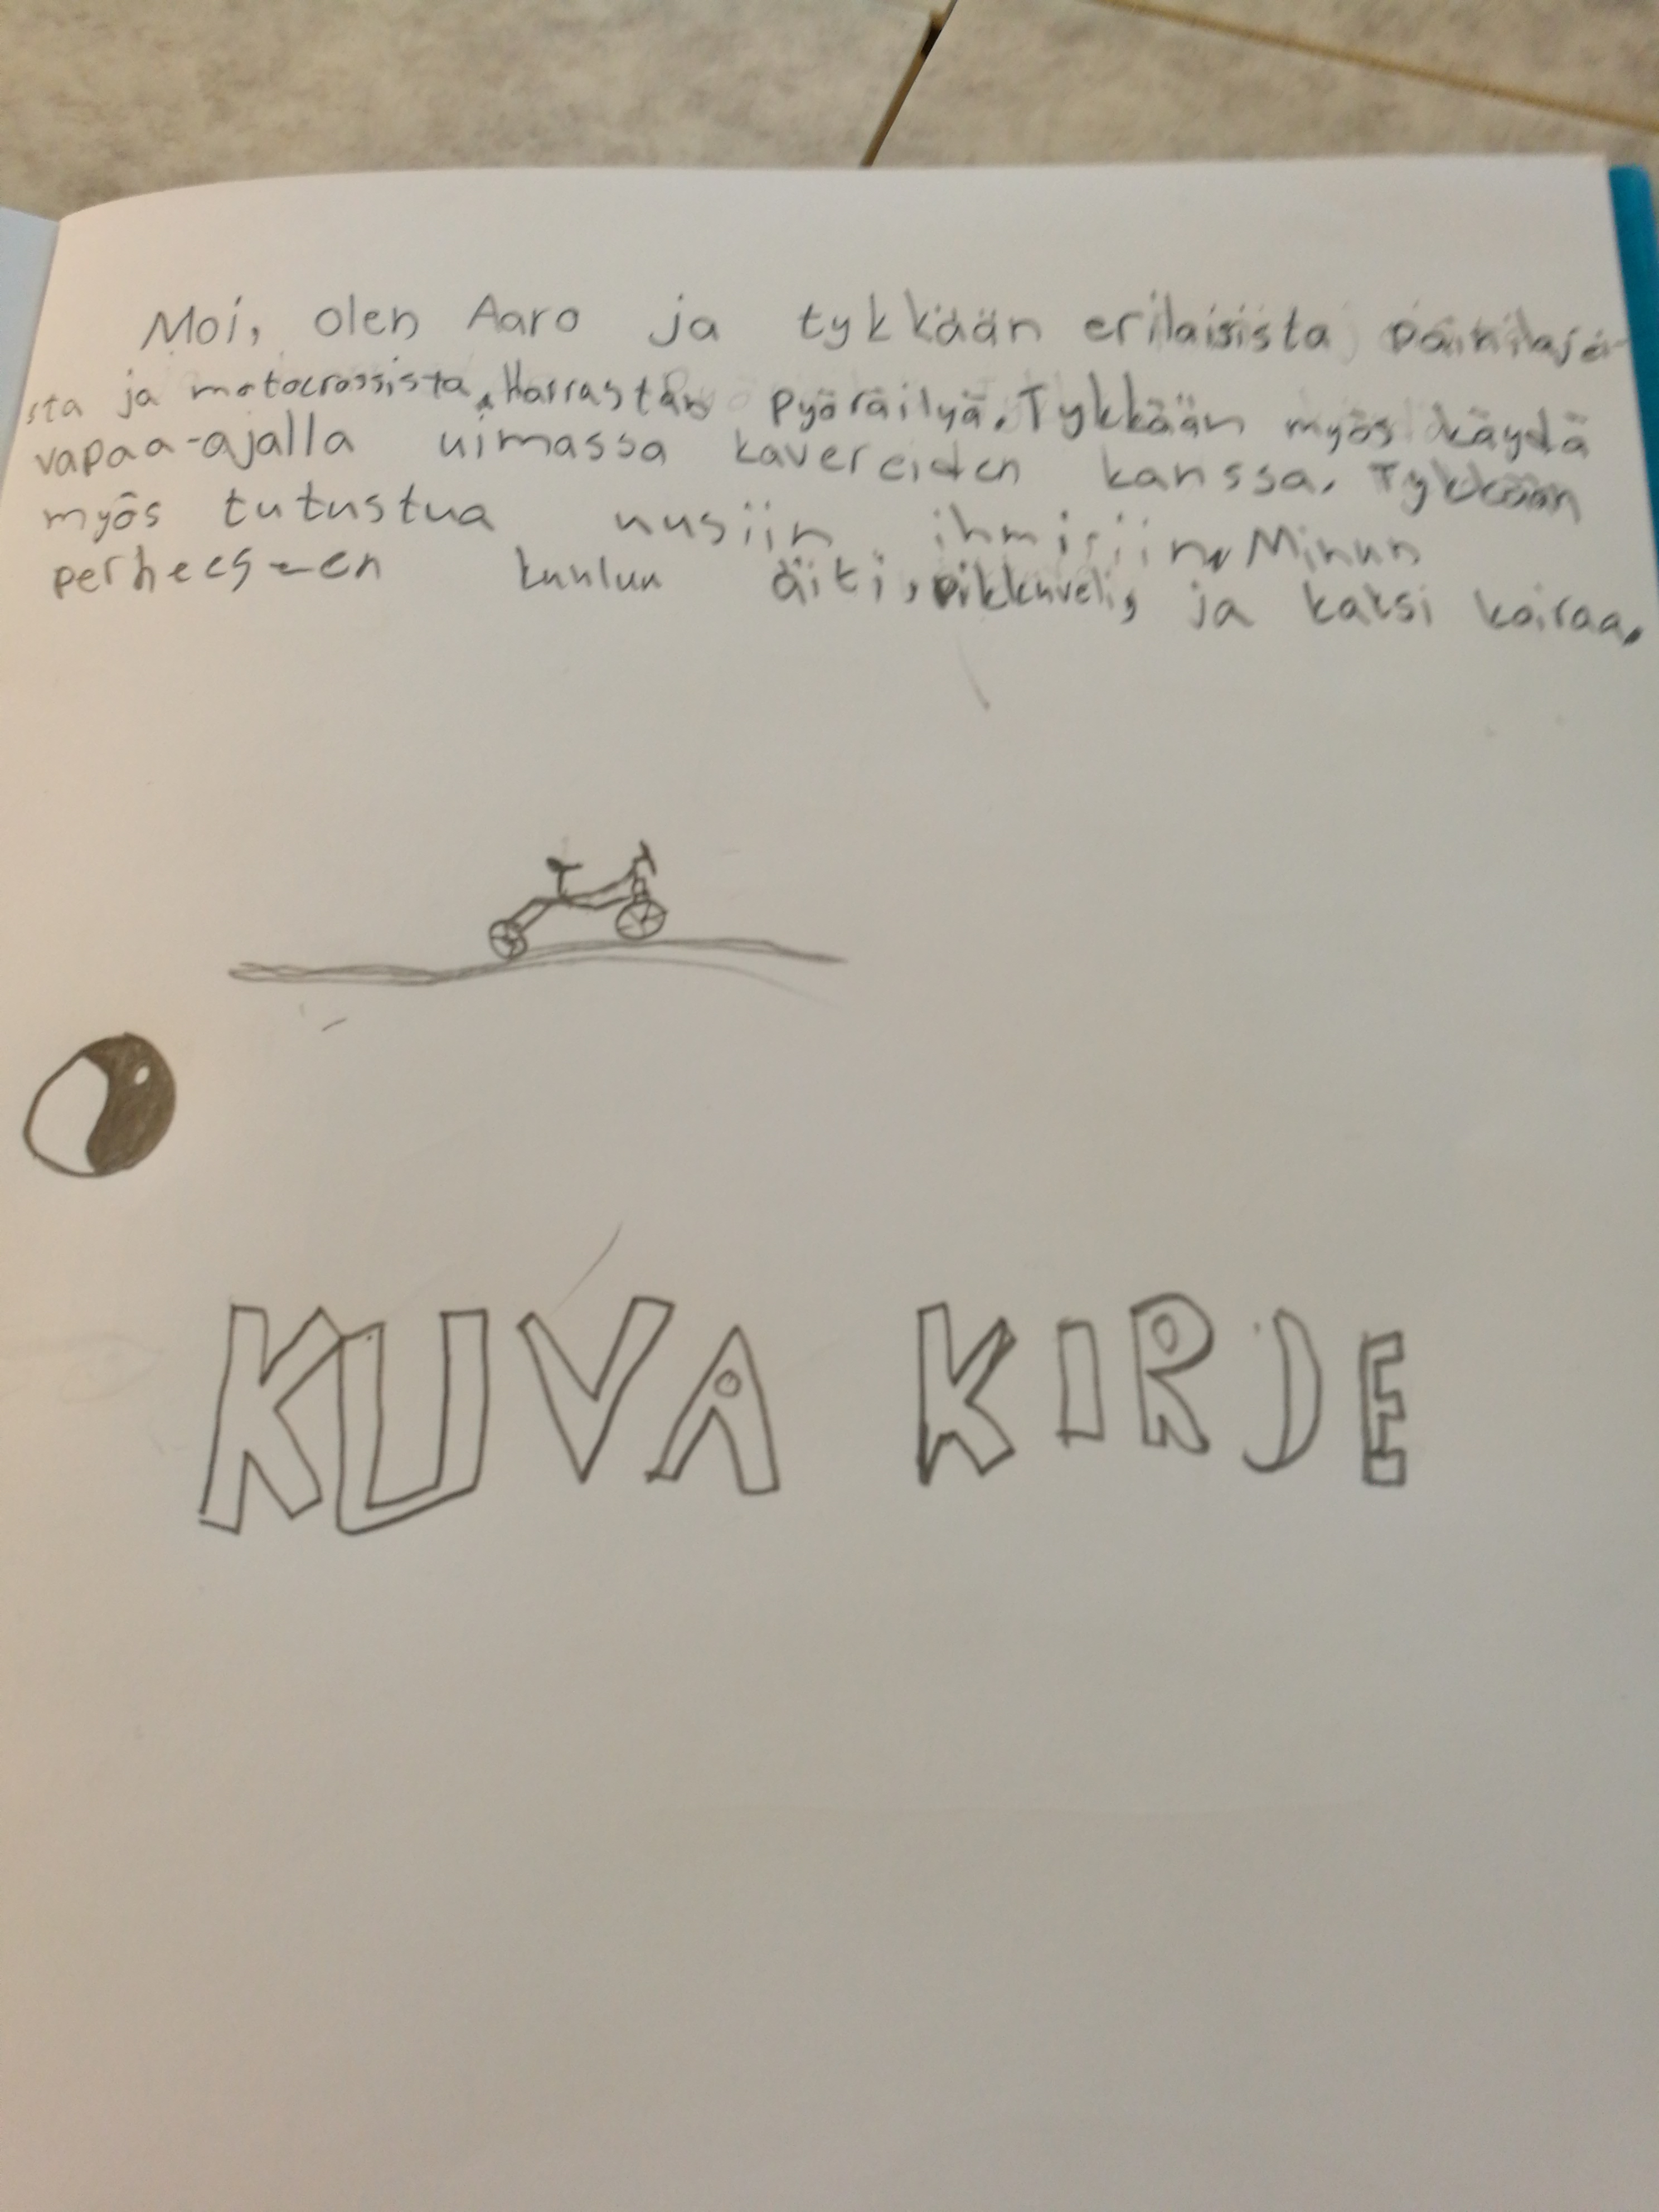 Moi, olen Aaro ja tykkään erilaisista painilajei-
sta ja motocrossista. Harrastan pyöräilyä. Tykkään myös käydä
vapaa-ajalla uimassa kavereiden kanssa. Tykkään
myös tutustua uusiin ihmisiin. Minun
perheeseen kuuluu äiti, pikkuveli, ja kaksi koiraa.
KUVA KIRJE